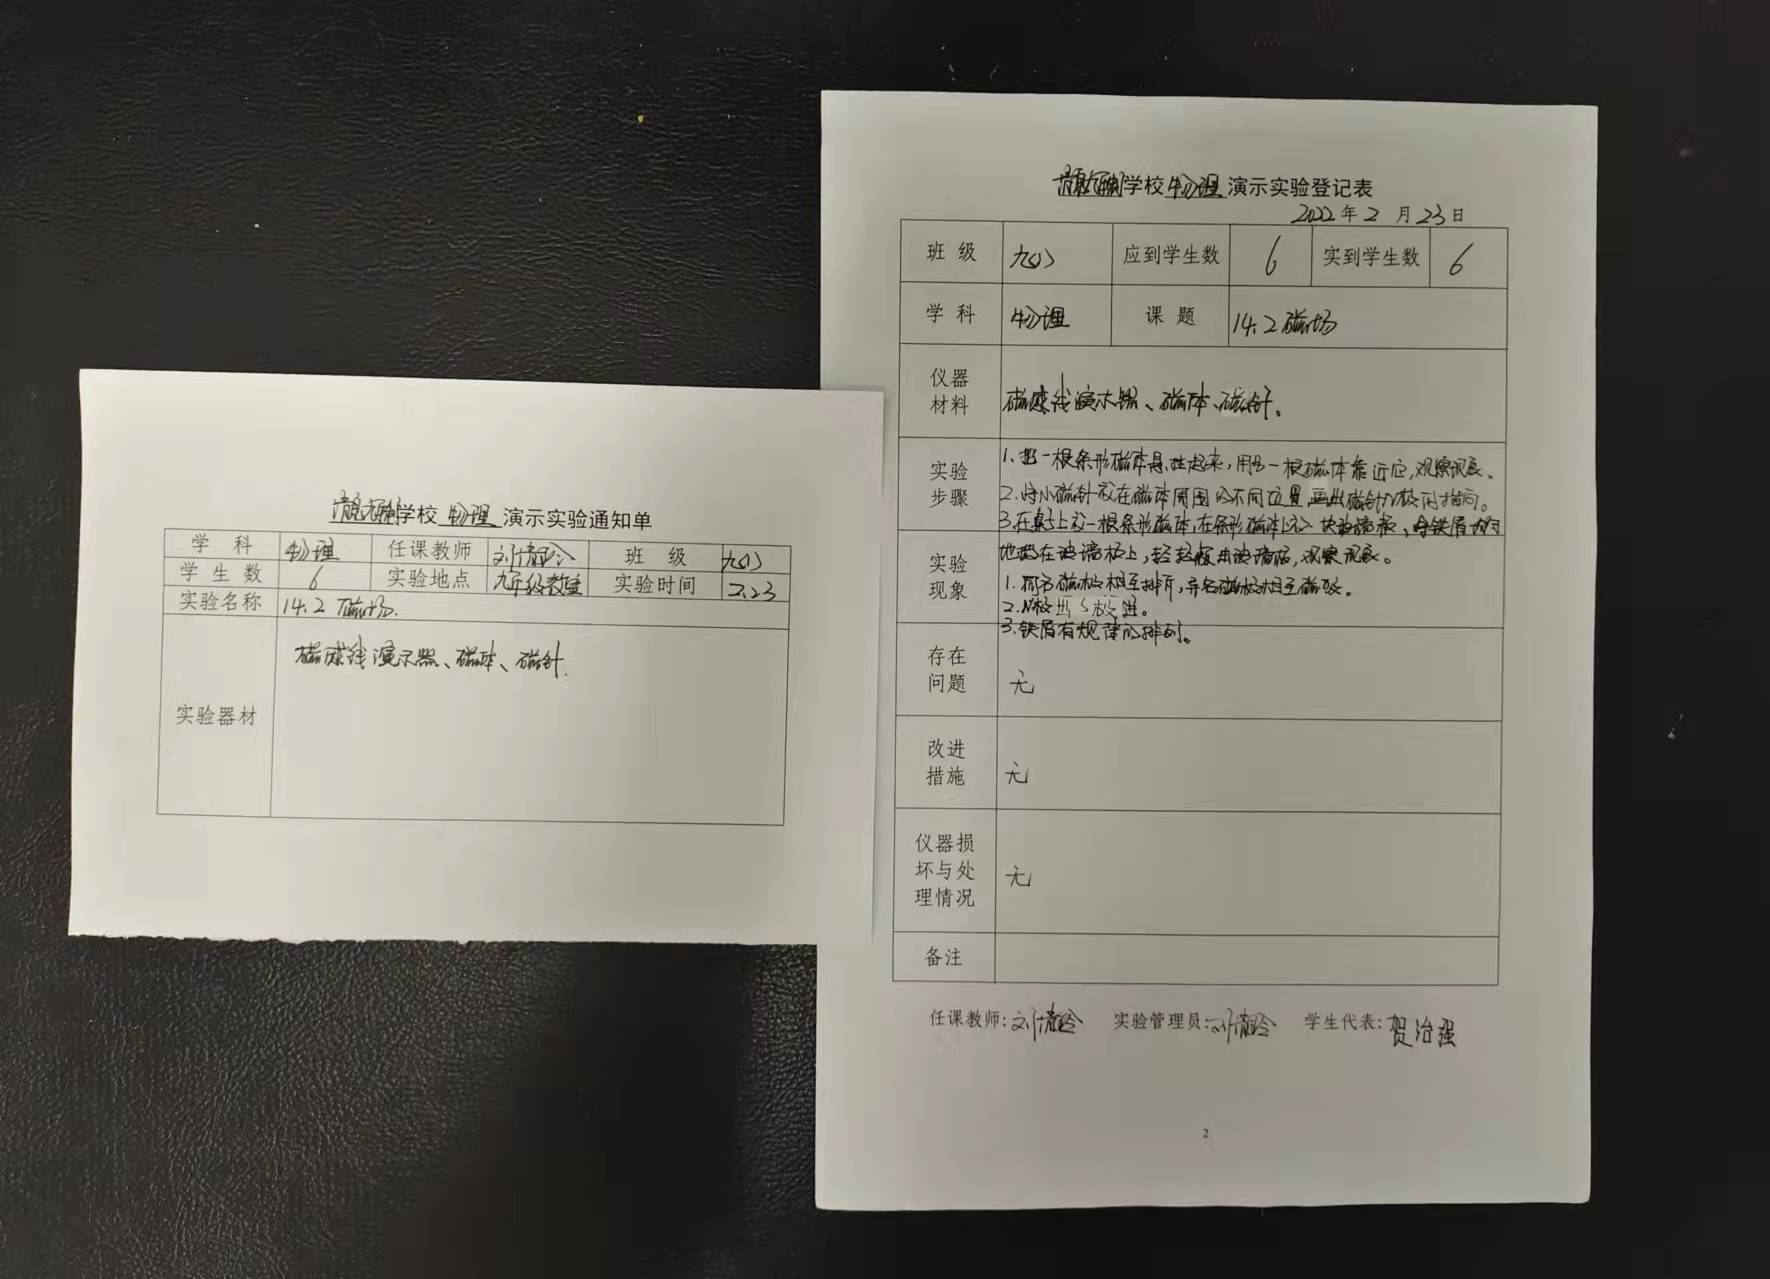 学校 物理 演示实验通知单
学 科 物理 任课教师 刘 班 级 九(1)
学 生 数 6 实验地点 九年级教室 实验时间 2.23
实验名称 14.2 磁场.
实验器材 磁感线演示器、磁体、磁针.
学校 物理 演示实验登记表
2022年2月23日
班 级 九(1) 应到学生数 6 实到学生数 6
学 科 物理 课 题 14.2 磁场
仪器材料 磁感线演示器、磁体、磁针。
实验步骤
1、把一根条形磁体悬挂起来,用另一根磁体靠近它,观察现象、
2、将小磁针放在磁体周围的不同位置,画出磁针N极的指向。
3、在桌上放一根条形磁体,在条形磁体上放一块玻璃板,将铁屑均匀
地撒在玻璃板上,轻轻敲击玻璃板,观察现象。
实验现象
1.同名磁极相互排斥,异名磁极相互吸引。
2.N极出S极进。
3.铁屑有规律的排列。
存在问题 无
改进措施 无
仪器损坏与处理情况 无
备注
任课教师:刘 实验管理员:刘 学生代表:贺治强
2